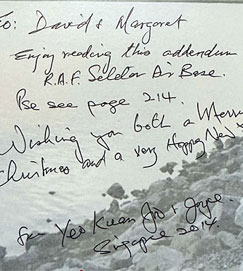 To: David & Margaret
Enjoy reading this addendum
R.A.F. Seletar Air Base.
Pse see page 214.
Wishing you both a Merry
Christmas and a very Happy New
Yeo Kuan Joo & Joyce.
Singapore 2014.